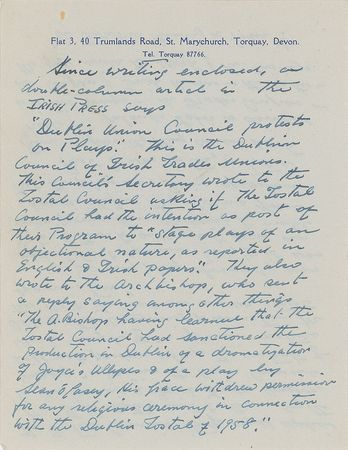 Flat 3, 40 Trumlands Road, St. Marychurch, Torquay, Devon.
Tel. Torquay 87766.
Since writing enclosed, a
double-column article in the
IRISH PRESS says
"Dublin Union Council protests
on Plays". This is the Dublin
Council of Irish Trades Unions.
This Council's Secretary wrote to the
Tostal Council asking if The Tostal
Council had the intention as part of
their Program to "stage plays of an
objectional nature, as reported in
English & Irish papers." They also
wrote to the Archbishop, who sent
a reply saying among other things
"The A.Bishop having learned that the
Tostal Council had sanctioned the
production in Dublin of a dramatization
of Joyce's Ulysses & of a play by
Sean O'Casey, His Grace withdrew permission
for any religious ceremony in connection
with the Dublin Tostal of 1958."